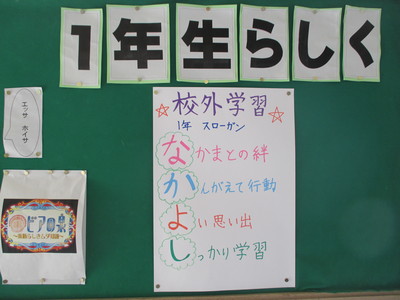 1年生らしく
エッサ ホイサ
☆校外学習☆
1年 スローガン
なかまとの絆
かんがえて行動
よい思い出
しっかり学習